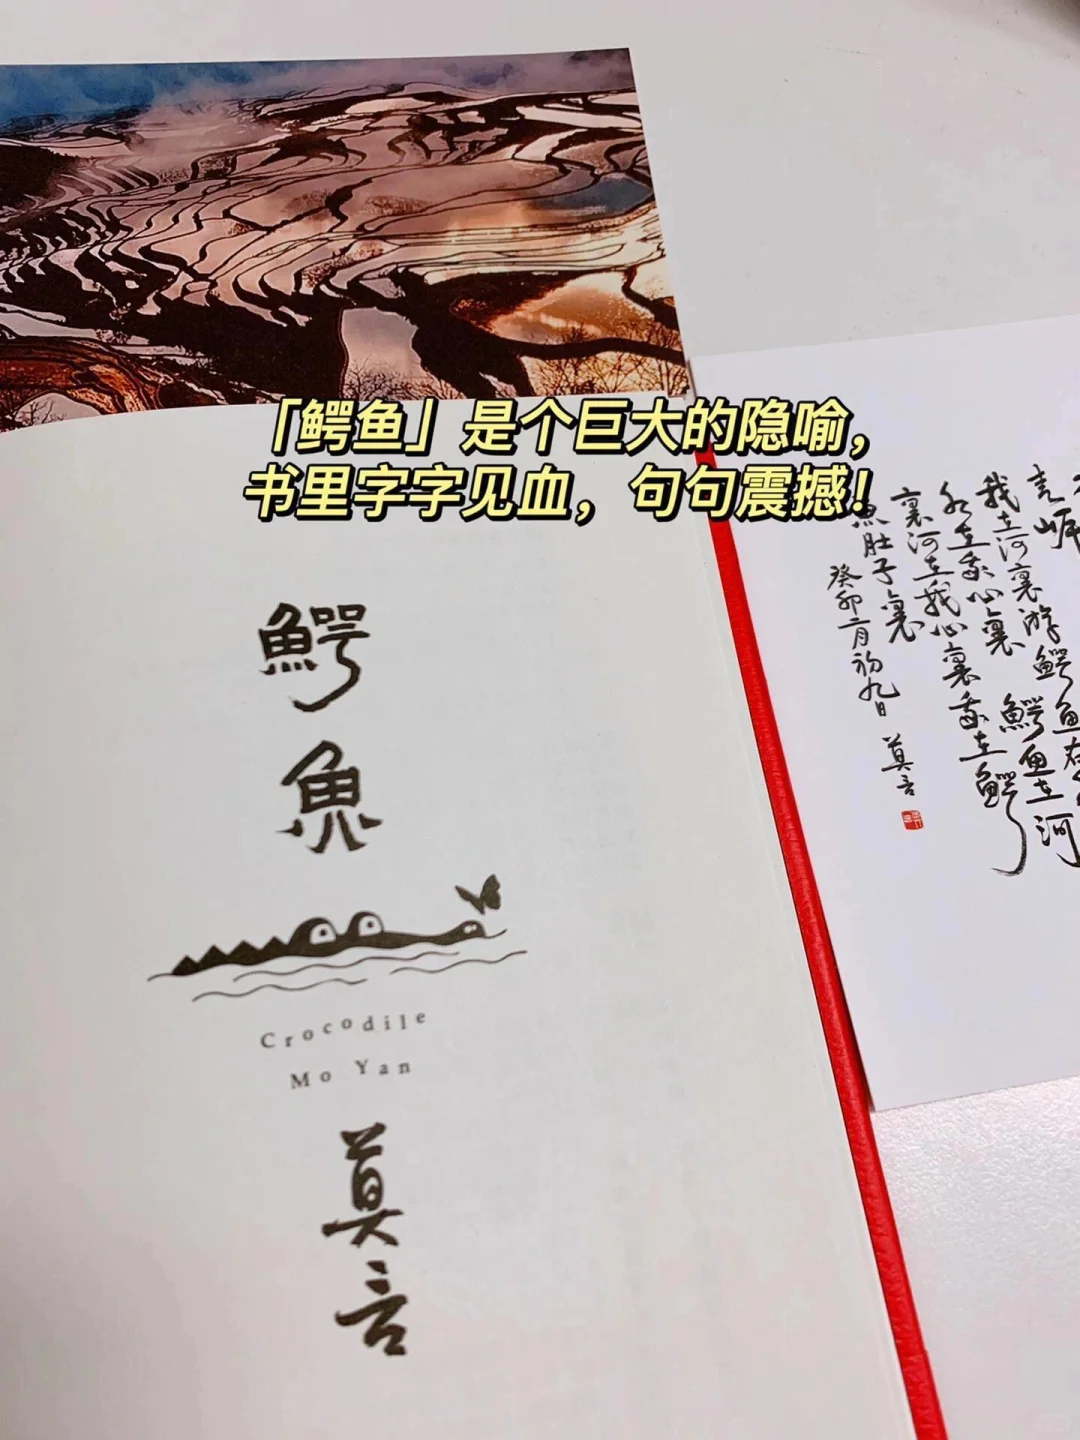 「鳄鱼」是个巨大的隐喻，
书里字字见血，句句震撼！
鰐
魚
Crocodile
Mo Yan
莫
言
我在河裏游鰐魚在
水在我心裏鰐魚在河
裏河在我心裏我在鰐
魚肚子裏
癸卯二月初九日
莫言